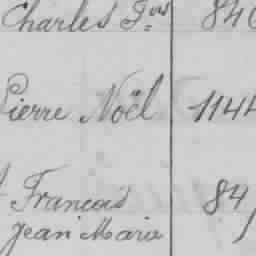 Charles Jos 840
Pierre Noël 1144
François 84
Jean Marie